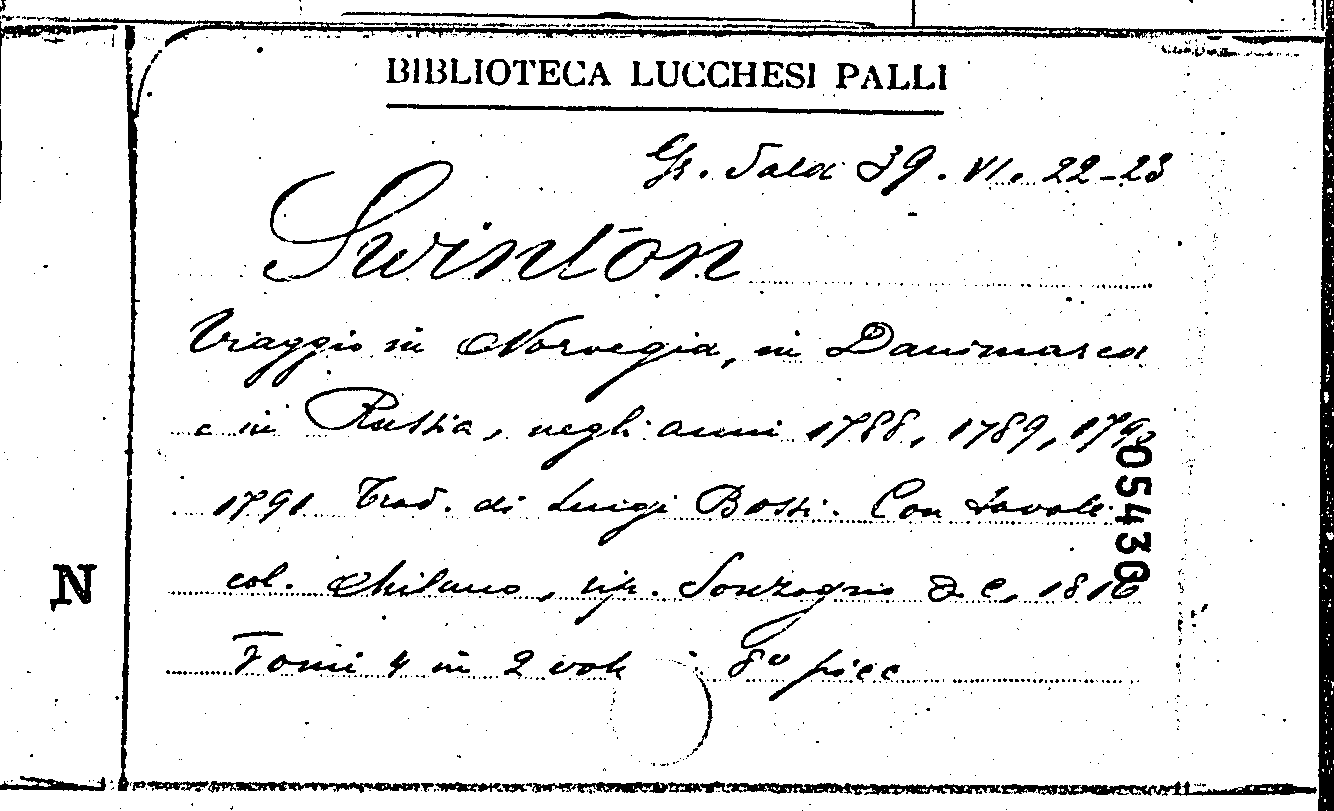 BIBLIOTECA LUCCHESI PALLI
Gr. Sala 39. VI. 22-23
Swinton
Viaggio in Norvegia, in Danimarca
e in Russia, negli anni 1788, 1789, 1790
1791 Trad. di Luigi Bossi. Con tavole
col. Milano, tip. Sonzogno & C, 1816
Tomi 4 in 2 vol. 8° picc
N
05430